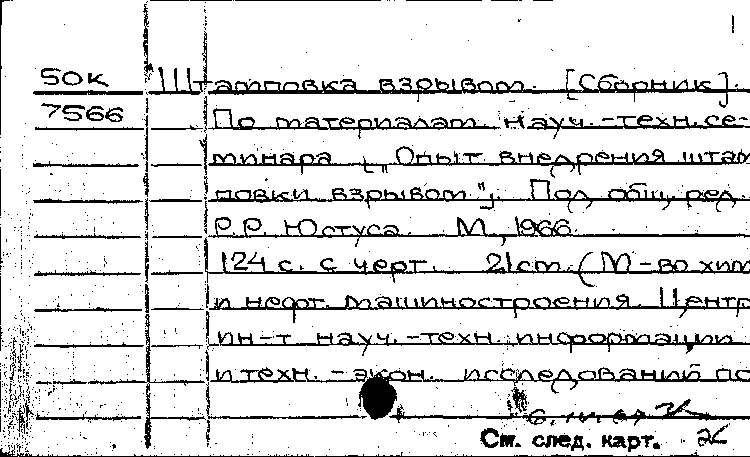 50к Штамповка взрывом. [Сборник].
7566 По материалам науч.-техн. се-
минара „Опыт внедрения штам
повки взрывом". Под общ. ред.
Р.Р. Юстуса. М., 1966.
124 с. с черт. 21 см. (М-во хим
и нефт. машиностроения. Центр
ин-т науч.-техн. информации
и техн.-экон. исследований по
См. след. карт.